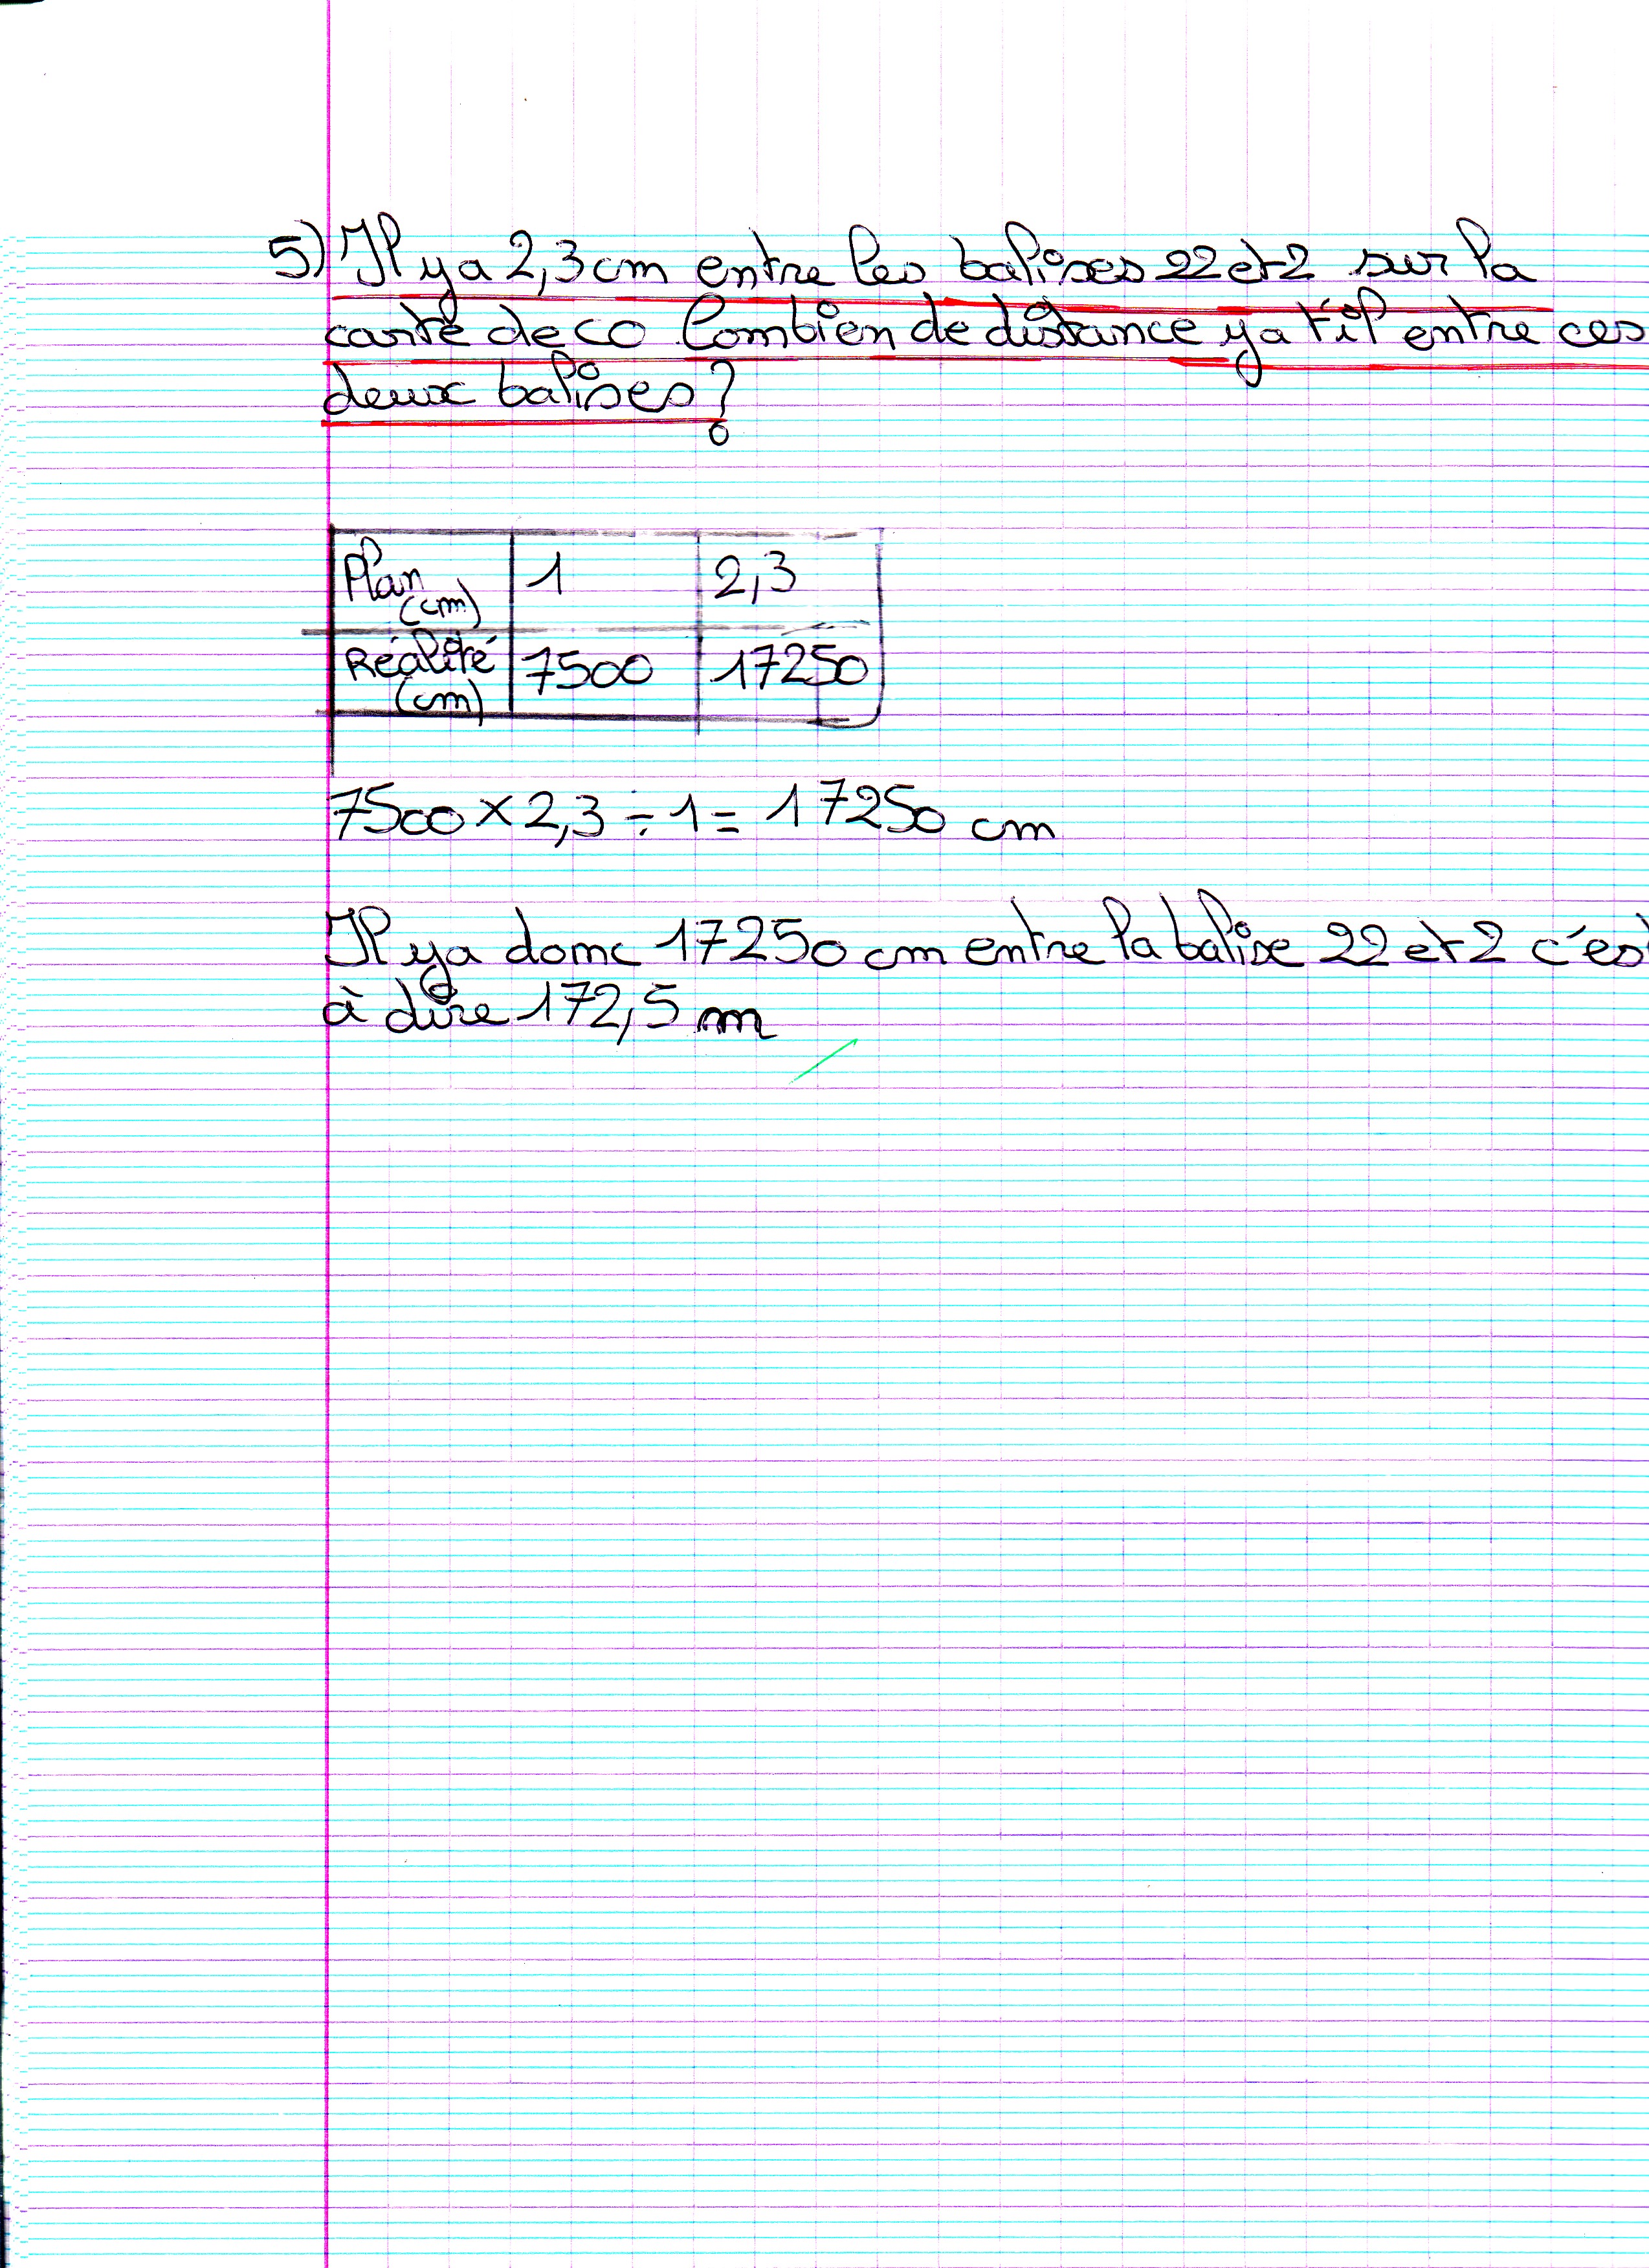 5) Il y a 2,3 cm entre les balises 22 et 2 sur la
carte de co Combien de distance y a t'il entre ces
deux balises ?
Plan (cm) 1 2,3
Réalité (cm) 7500 17250
7500 × 2,3 ÷ 1 = 17250 cm
Il y a donc 17250 cm entre la balise 22 et 2 c'est
à dire 172,5 m